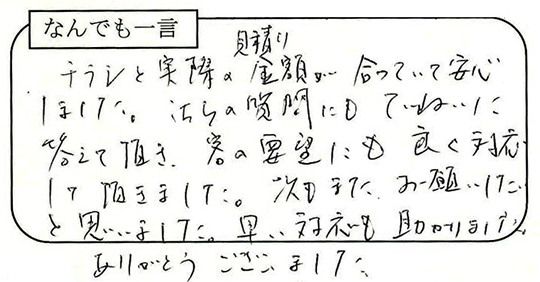 なんでも一言
見積り
チラシと実際の金額が合っていて安心
しました。こちらの質問にもていねいに
答えて頂き、客の要望にも良く対応
して頂きました。次もまたお願いしたい
と思いました。早い対応も助かりました。
ありがとうございました